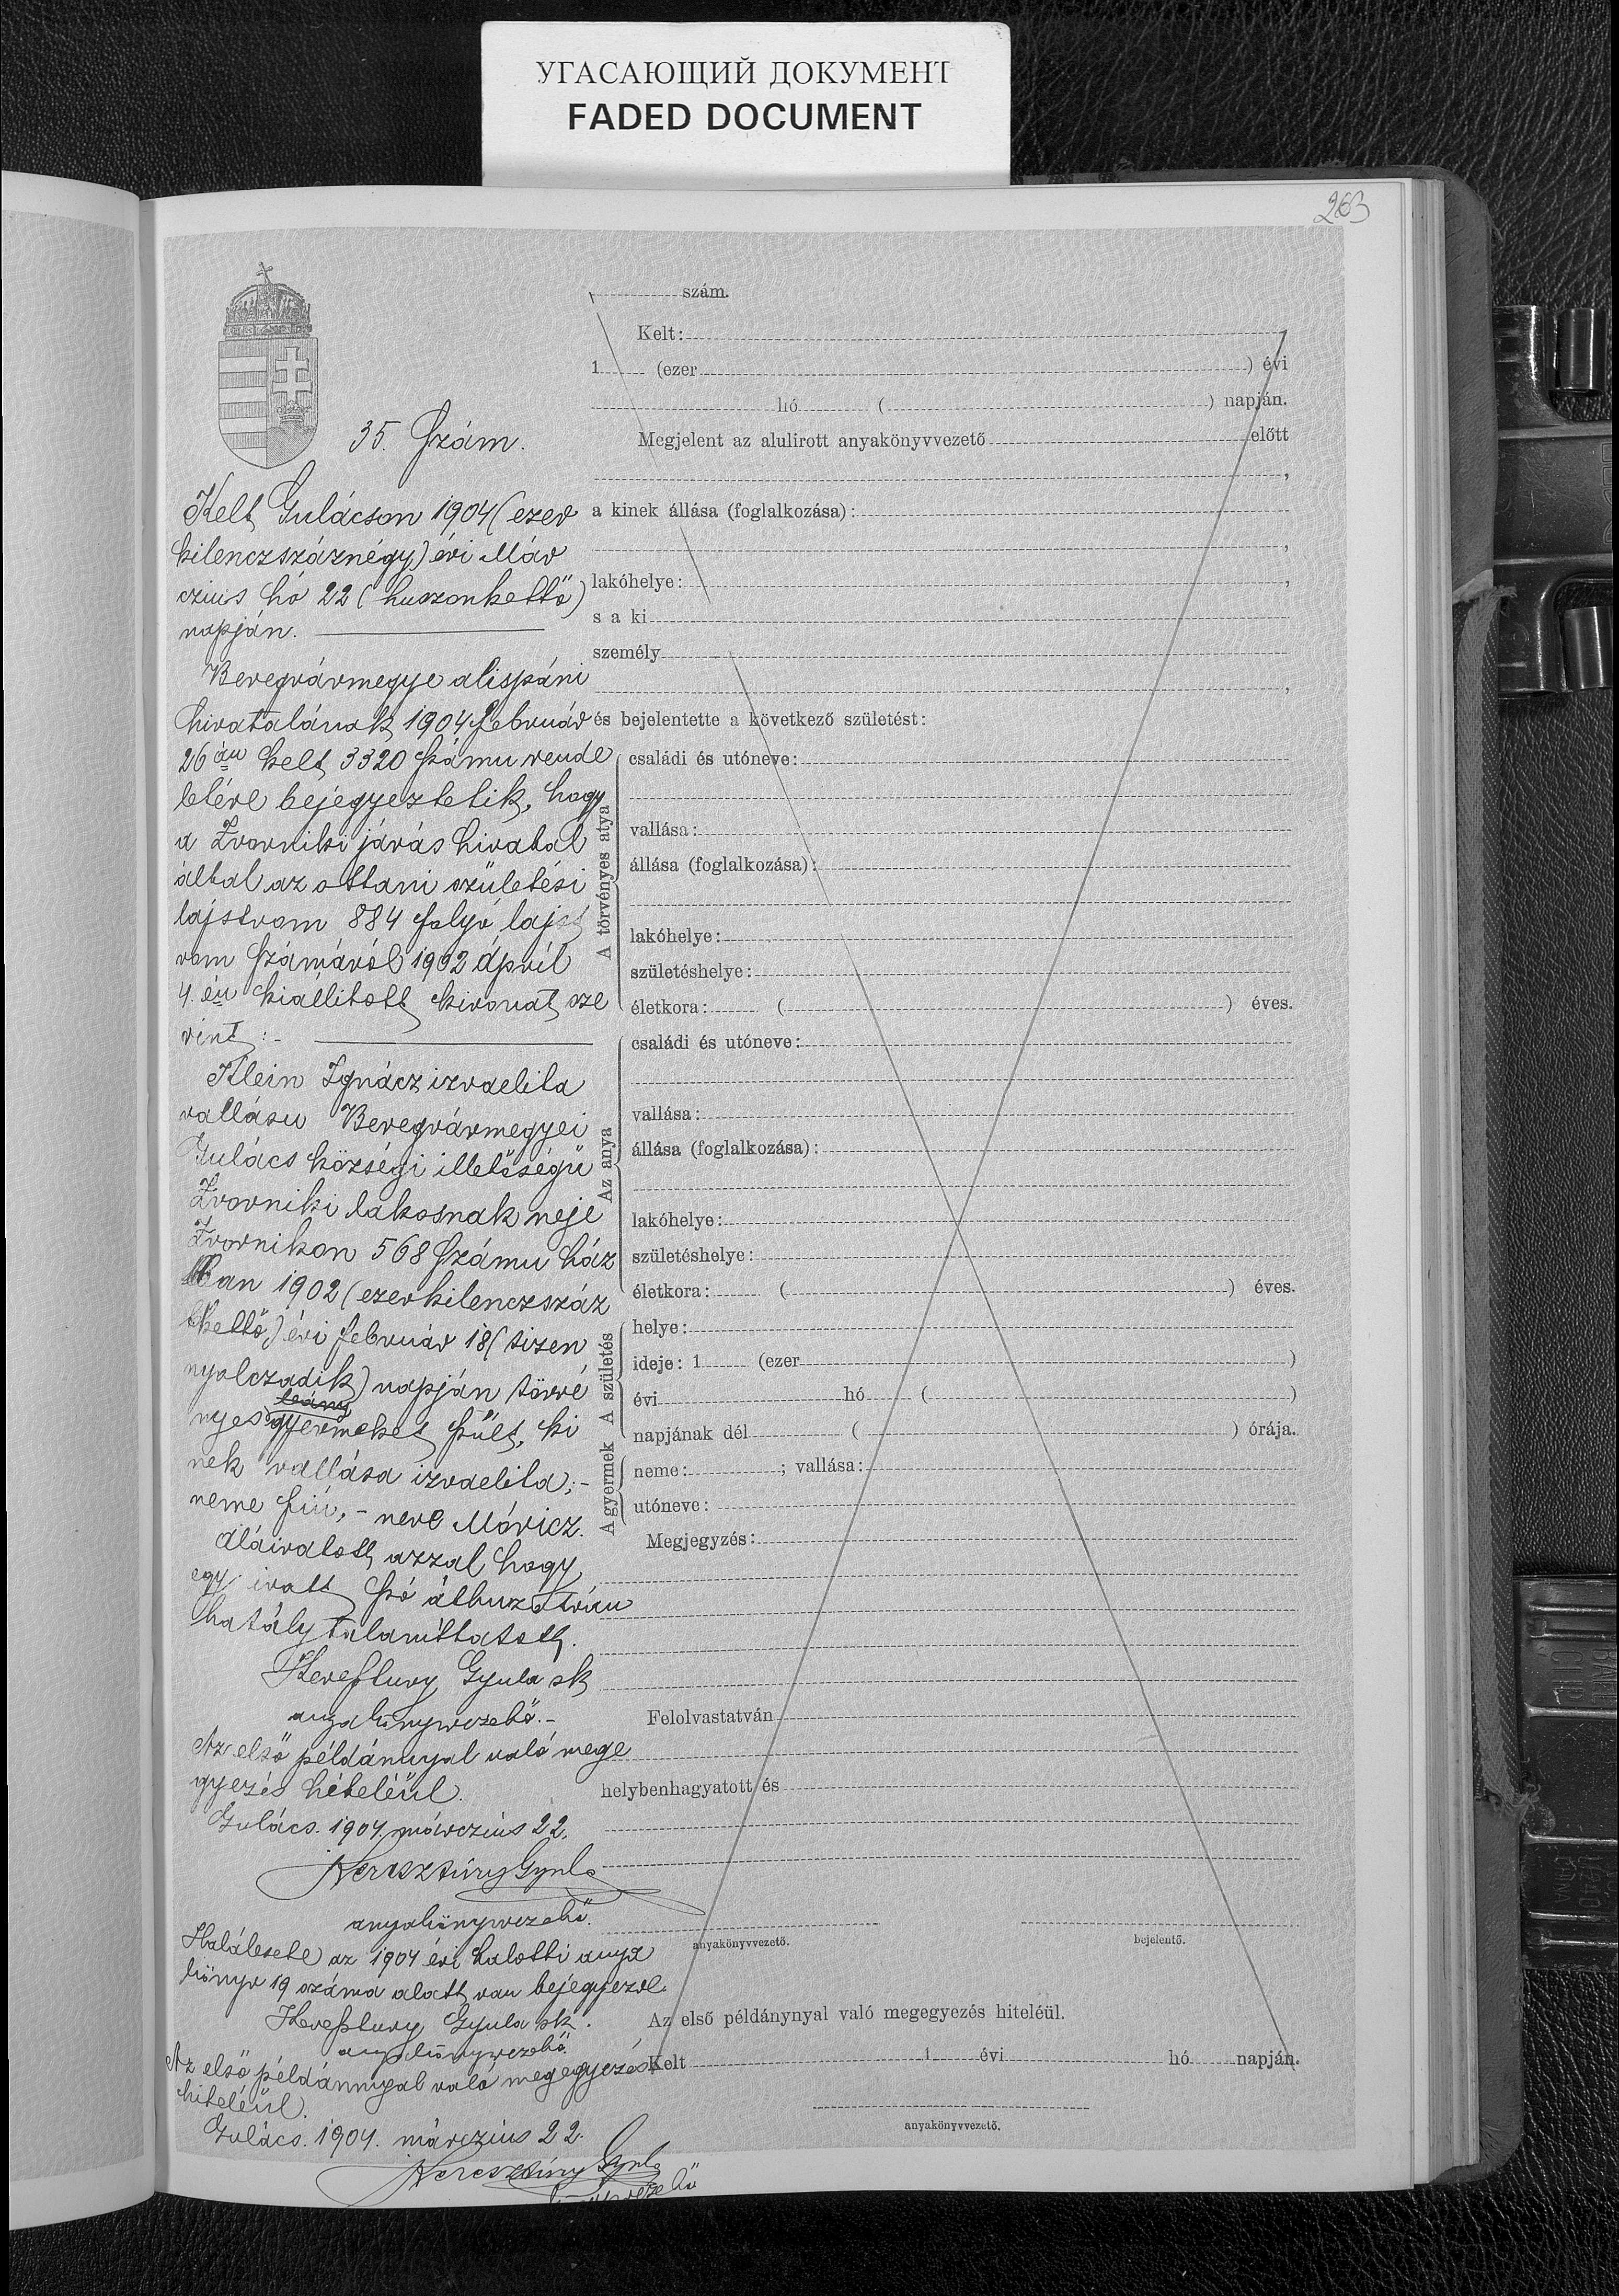 УГАСАЮЩИЙ ДОКУМЕНТ
FADED DOCUMENT
263
35. Szám.
Kelt Gulácson 1904 (ezer
kilenczszáznégy) évi Már
czius hó 22 (huszonkettő)
napján.
Beregvármegye alispáni
hivatalának 1904 február
26 án kelt 3320 számu rende
letére bejegyeztetik, hogy
a Zvorniki járás hivatal
által az ottani születési
lajstrom 884 folyó lajst
rom számáról 1902 ápril
4. én kiállitott kivonat sze
rint:-
Klein Ignácz izraelita
vallásu Beregvármegyei
Gulács községi illetőségű
Zvorniki lakosnak neje
Zvornikon 568 számu ház
ban 1902 (ezerkilenczszáz
kettő) évi február 18 (tizen
nyolczadik) napján törvé
leány
nyes gyermeket szült, ki
nek vallása izraelita;-
neme fiú,- neve Móricz.
Aláiratott azzal hogy
egy iratt szó áthuzatván
hatálytalaníttatott.
Keresztury Gyula sk
anyakönyvvezető.-
Az első példánnyal való mege
gyezés hiteléül.
Gulács. 1904. márczius 22.
Keresztúry Gyula
anyakönyvvezető.
Halálesete az 1904 évi halotti anya
könyv 19 száma alatt van bejegyezve.
Keresztury Gyula sk.
anyakönyvvezető.
Az első példánnyal való megegyezés
hiteléül.
Gulács. 1904. márczius 22.
Keresztúry Gyula
szám.
Kelt:
1 (ezer ) évi
hó ( ) napján.
Megjelent az alulirott anyakönyvvezető előtt
,
a kinek állása (foglalkozása):
,
lakóhelye: ,
s a ki
személy
,
és bejelentette a következő születést:
A törvényes atya
családi és utóneve:
vallása:
állása (foglalkozása):
lakóhelye:
születéshelye:
életkora: ( ) éves.
Az anya
családi és utóneve:
vallása:
állása (foglalkozása):
lakóhelye:
születéshelye:
életkora: ( ) éves.
A születés
helye:
ideje: 1 (ezer )
évi hó ( )
napjának dél ( ) órája.
A gyermek
neme: ; vallása:
utóneve:
Megjegyzés:
Felolvastatván
helybenhagyatott és
anyakönyvvezető. bejelentő.
Az első példánynyal való megegyezés hiteléül.
Kelt 1 évi hó napján.
anyakönyvvezető.